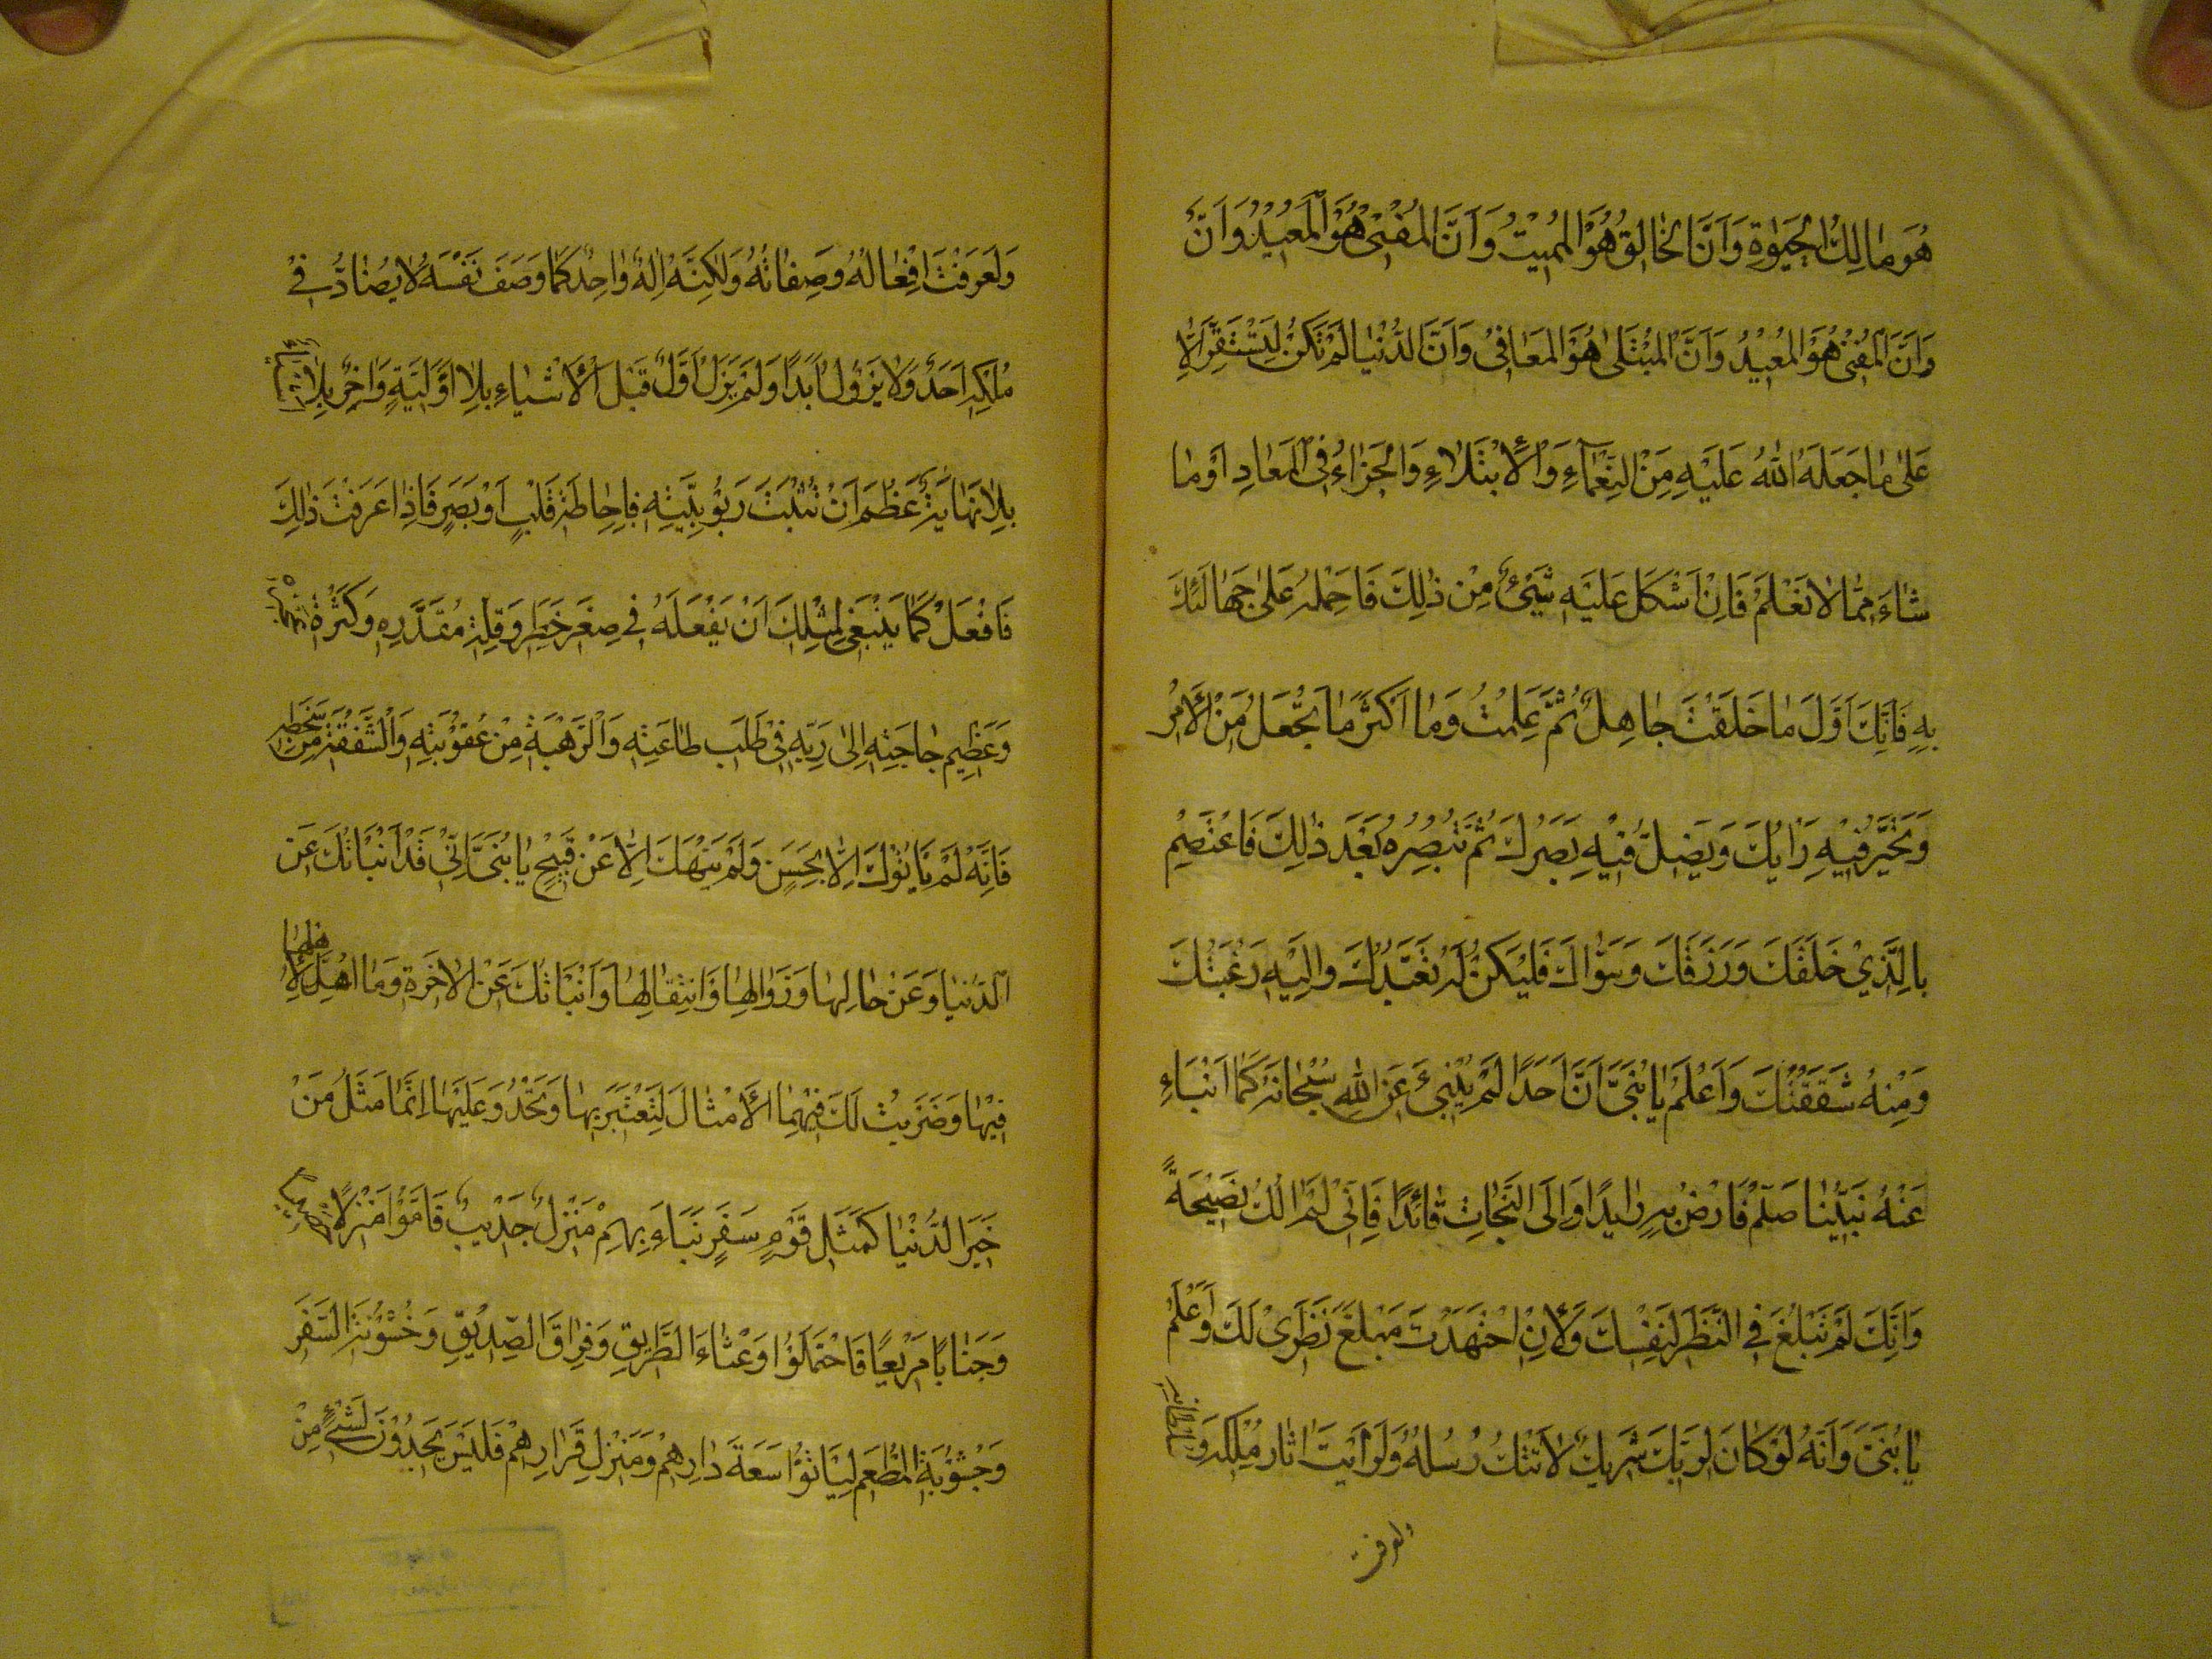 هُوَ مَالِكُ الْحَيٰوةِ وَاَنَّ الْخَالِقَ هُوَ الْمُمِيتُ وَاَنَّ الْمُفْنِيَ هُوَ الْمُعِيْدُ وَاَنَّ
وَاَنَّ الْمُفْنِيَ هُوَ الْمُعِيْدُ وَاَنَّ الْمُبْتَلِى هُوَ الْمُعَافِى وَاَنَّ الدُّنْيَا لَمْ تَكُنْ لِتَسْتَقِرَّ اِلَّا
عَلىٰ مَا جَعَلَهَ اللهُ عَلَيْهِ مِنَ النَّعْمَآءِ وَالْاِبْتَلَاءِ وَالْجَزَاءِ فِى الْمَعَادِ اَوْ مَا
شَاءَ مِمَّا لَا تَعْلَمُ فَاِنْ اَشْكَلَ عَلَيْهِ شَيْئٌ مِنْ ذٰلِكَ فَاحْمِلْهُ عَلىٰ جَهَالَتِكَ
بِهِ فَاِنَّكَ اَوَّلَ مَا خَلَقْتَ جَاهِلٌ ثُمَّ عَلِمْتَ وَمَا اَكْثَرَ مَا تَجْعَلُ مِنَ الْاَمْرِ
وَيَتَحَيَّرُ فِيْهِ رَايُكَ وَيَضِلُّ فِيْهِ بَصَرُكَ ثُمَّ تُبْصِرُهُ بَعْدَ ذٰلِكَ فَاعْتَصِمْ
بِالَّذِيْ خَلَقَكَ وَرَزَقَكَ وَسَوَّاكَ فَلْيَكُنْ لَهُ تَعَبُّدُكَ وَاِلَيْهِ رَغْبَتُكَ
وَمِنْهُ شَفَقَتُكَ وَاعْلَمْ يَا بُنَيَّ اَنَّ اَحَدًا لَمْ يُنْبِئْ عَنِ اللهِ سُبْحَانَهُ كَمَا اَنْبَاءِ
عَنْهُ نَبِيُّنَا صَلَّمْ فَارْضَ بِهِ رَايِدًا وَاِلَى النَّجَاتِ قَائِدًا فَاِنِّى لَمْ اٰلُكَ نَصِيْحَةً
وَاِنَّكَ لَمْ تَبْلُغْ فِى النَّظَرِ لِنَفْسِكَ وَلَاِنِ اجْتَهَدْتَ مَبْلَغَ نَظَرِىْ لَكَ وَاعْلَمْ
يَا بُنَىَّ وَاَنَّهُ لَوْ كَانَ لِرَبِّكَ شَرِيْكٌ لَاَتَتْكَ رُسُلُهُ وَلَرَاَيْتَ اٰثَارَ مُلْكِهِ وَسُلْطَانِهِ
ولعرفت
وَلَعَرَفْتَ اَفْعَالَهُ وَصِفَاتَهُ وَلٰكِنَّهُ اِلٰهٌ وَاحِدٌ كَمَا وَصَفَ نَفْسَهُ لَا يُضَادُّ فِيْ
مُلْكِهِ اَحَدٌ وَلَا يَزُوْلُ اَبَدًا وَلَمْ يَزَلْ اَوَّلٌ قَبْلَ الْاَشْيَاءِ بِلَا اَوَّلِيَّةٍ وَاٰخِرٌ
بِلَا نَهَايَةٍ عَظُمَ اَنْ تُثْبَتَ رَبُوْبِيَّتِهِ فَاِحَاطَةِ قَلْبٍ اَوْ بَصَرٍ فَاِذَا عَرَفْتَ ذٰلِكَ
فَافْعَلْ كَمَا يَنْبَغِى لِمِثْلِكَ اَنْ يَفْعَلَهُ فِى صِغَرِ خَطَرِهِ وَقِلَّةِ مُقَدَّرِهِ وَكَثْرَةِ عجزه
وَعَظِيْمِ حَاجَتِهِ اِلىٰ رَبِّهِ فِىْ طَلَبِ طَاعَتِهِ وَالرَّهْبَةِ مِنْ عُقُوْبَتِهِ وَالشَّفَقَةِ مِنْ سخطه
فَاِنَّهُ لَمْ يَأْمُرْكَ اِلَّا بِحَسَنٍ وَلَمْ يَنْهَكَ اِلَّا عَنْ قَبِيْحٍ يَا بُنَىَّ اِنِّىْ قَدْ اَنْبَاتُكَ عَنِ
الدُّنْيَا وَعَنْ حَالِهَا وَزَوَالِهَا وَانْتِقَالِهَا وَاَنْبَاتُكَ عَنِ الْاٰخِرَةِ وَمَا لِاَهْلِهَا
فِيْهَا وَضَرَبْتُ لَكَ فِيْهِمَا الْاَمْثَالَ لِتَعْتَبِرَ بِهَا وَتَحْذُوَ عَلَيْهَا اِنَّمَا مَثَلُ مَنْ
خَبَرَ الدُّنْيَا كَمَثَلِ قَوْمٍ سَفَرٍ نَبَاءَ بِهِمْ مَنْزِلٌ جَدِيْبٌ فَاَمُّوْا مَنْزِلًا خصيبا
وَجَنَابًا مَرِيْعًا فَاحْتَمَلُوْا وَعْثَاءَ الطَّرِيْقِ وَفِرَاقَ الصِّدِيْقِ وَخُشُوْنَةَ السَّفَرِ
وَجُشُوْبَةَ الْمَطْعَمِ لِيَاتُوْا سَعَةَ دَارِهِمْ وَمَنْزِلَ قَرَارِهِمْ فَلَيْسَ يَجِدُوْنَ لِشَيْءٍ مِنْ